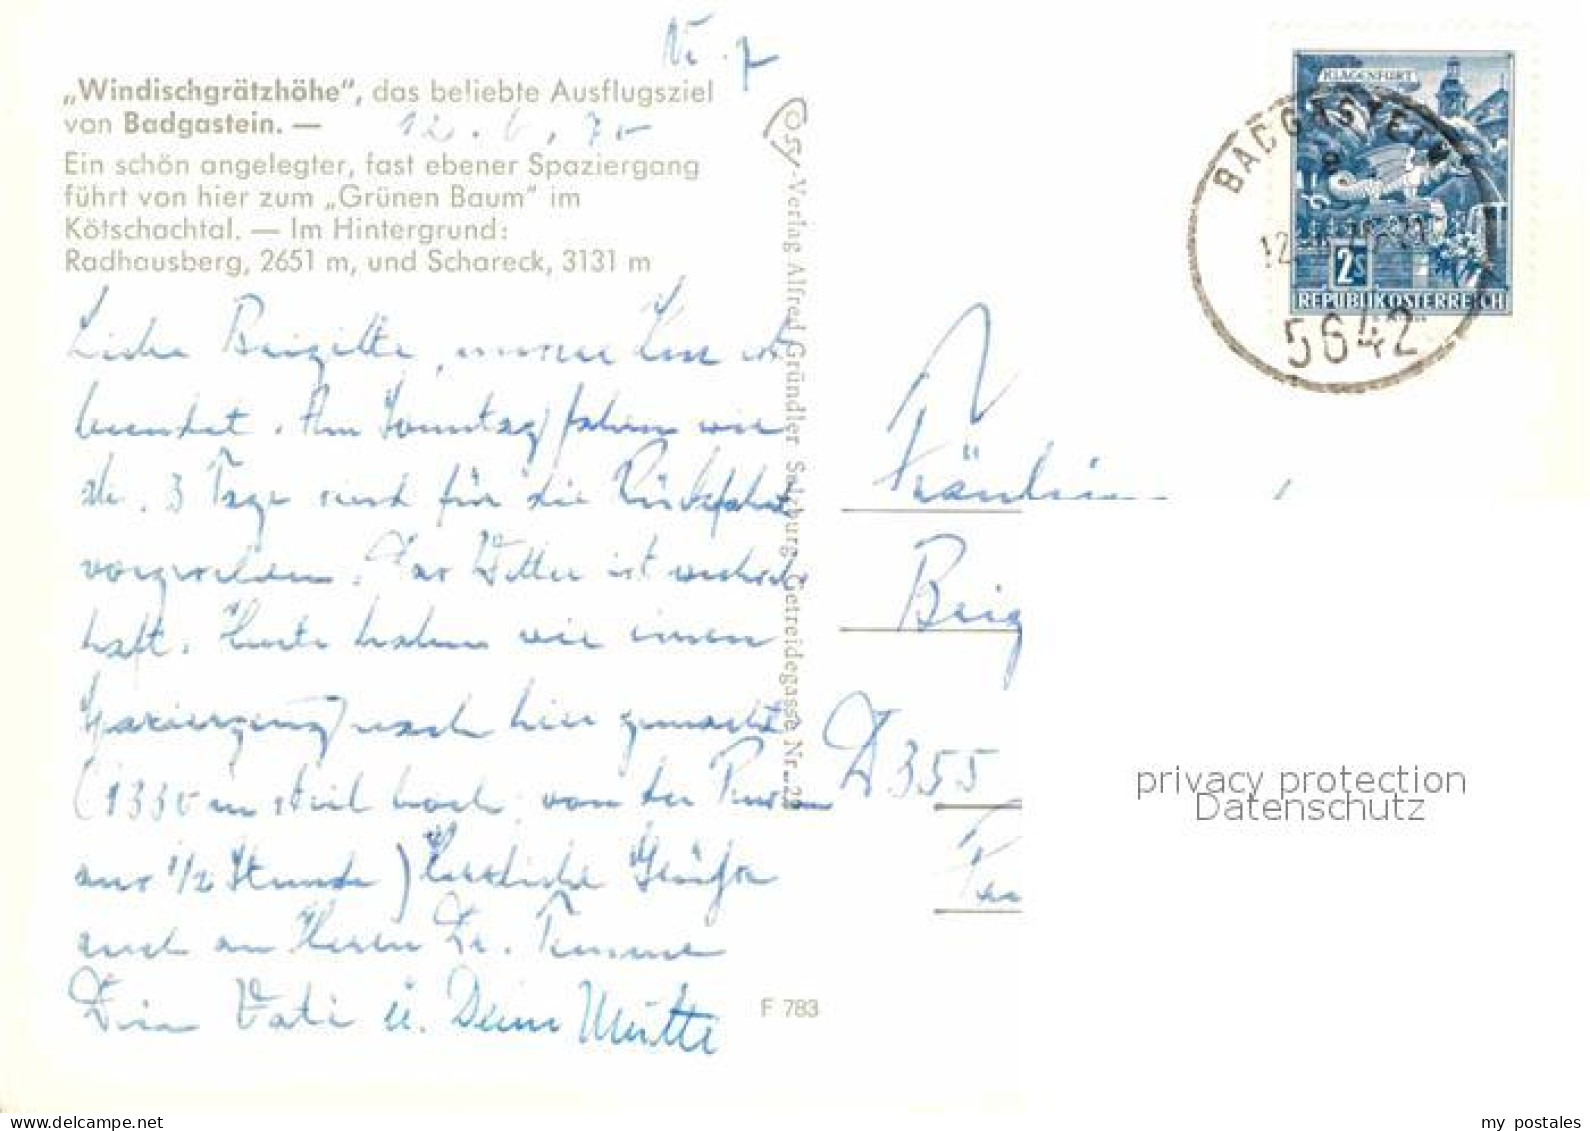 Nr. 7
„Windischgrätzhöhe“, das beliebte Ausflugsziel
von Badgastein. —
12.6.70
Ein schön angelegter, fast ebener Spaziergang
führt von hier zum „Grünen Baum“ im
Kötschachtal. — Im Hintergrund:
Radhausberg, 2651 m, und Schareck, 3131 m
Liebe Brigitte, unsere Kur ist
beendet. Am Sonntag fahren wir
ab. 3 Tage sind für die Rückfahrt
vorgesehen. Das Wetter ist wechsel
haft. Heute haben wir einen
Spaziergang nach hier gemacht
(1330 m steil hoch, von der Pension
nur 1/2 Stunde) Herzliche Grüße
auch an Herrn Dr.
Dein Vati u. Deine Mutti
F 783
Cosy-Verlag Alfred Gründler Salzburg, Getreidegasse Nr. 22
KLAGENFURT
2S
REPUBLIK ÖSTERREICH
BADGASTEIN
5642
Fräulein
Brig
D 355
privacy protection
Datenschutz
my postales